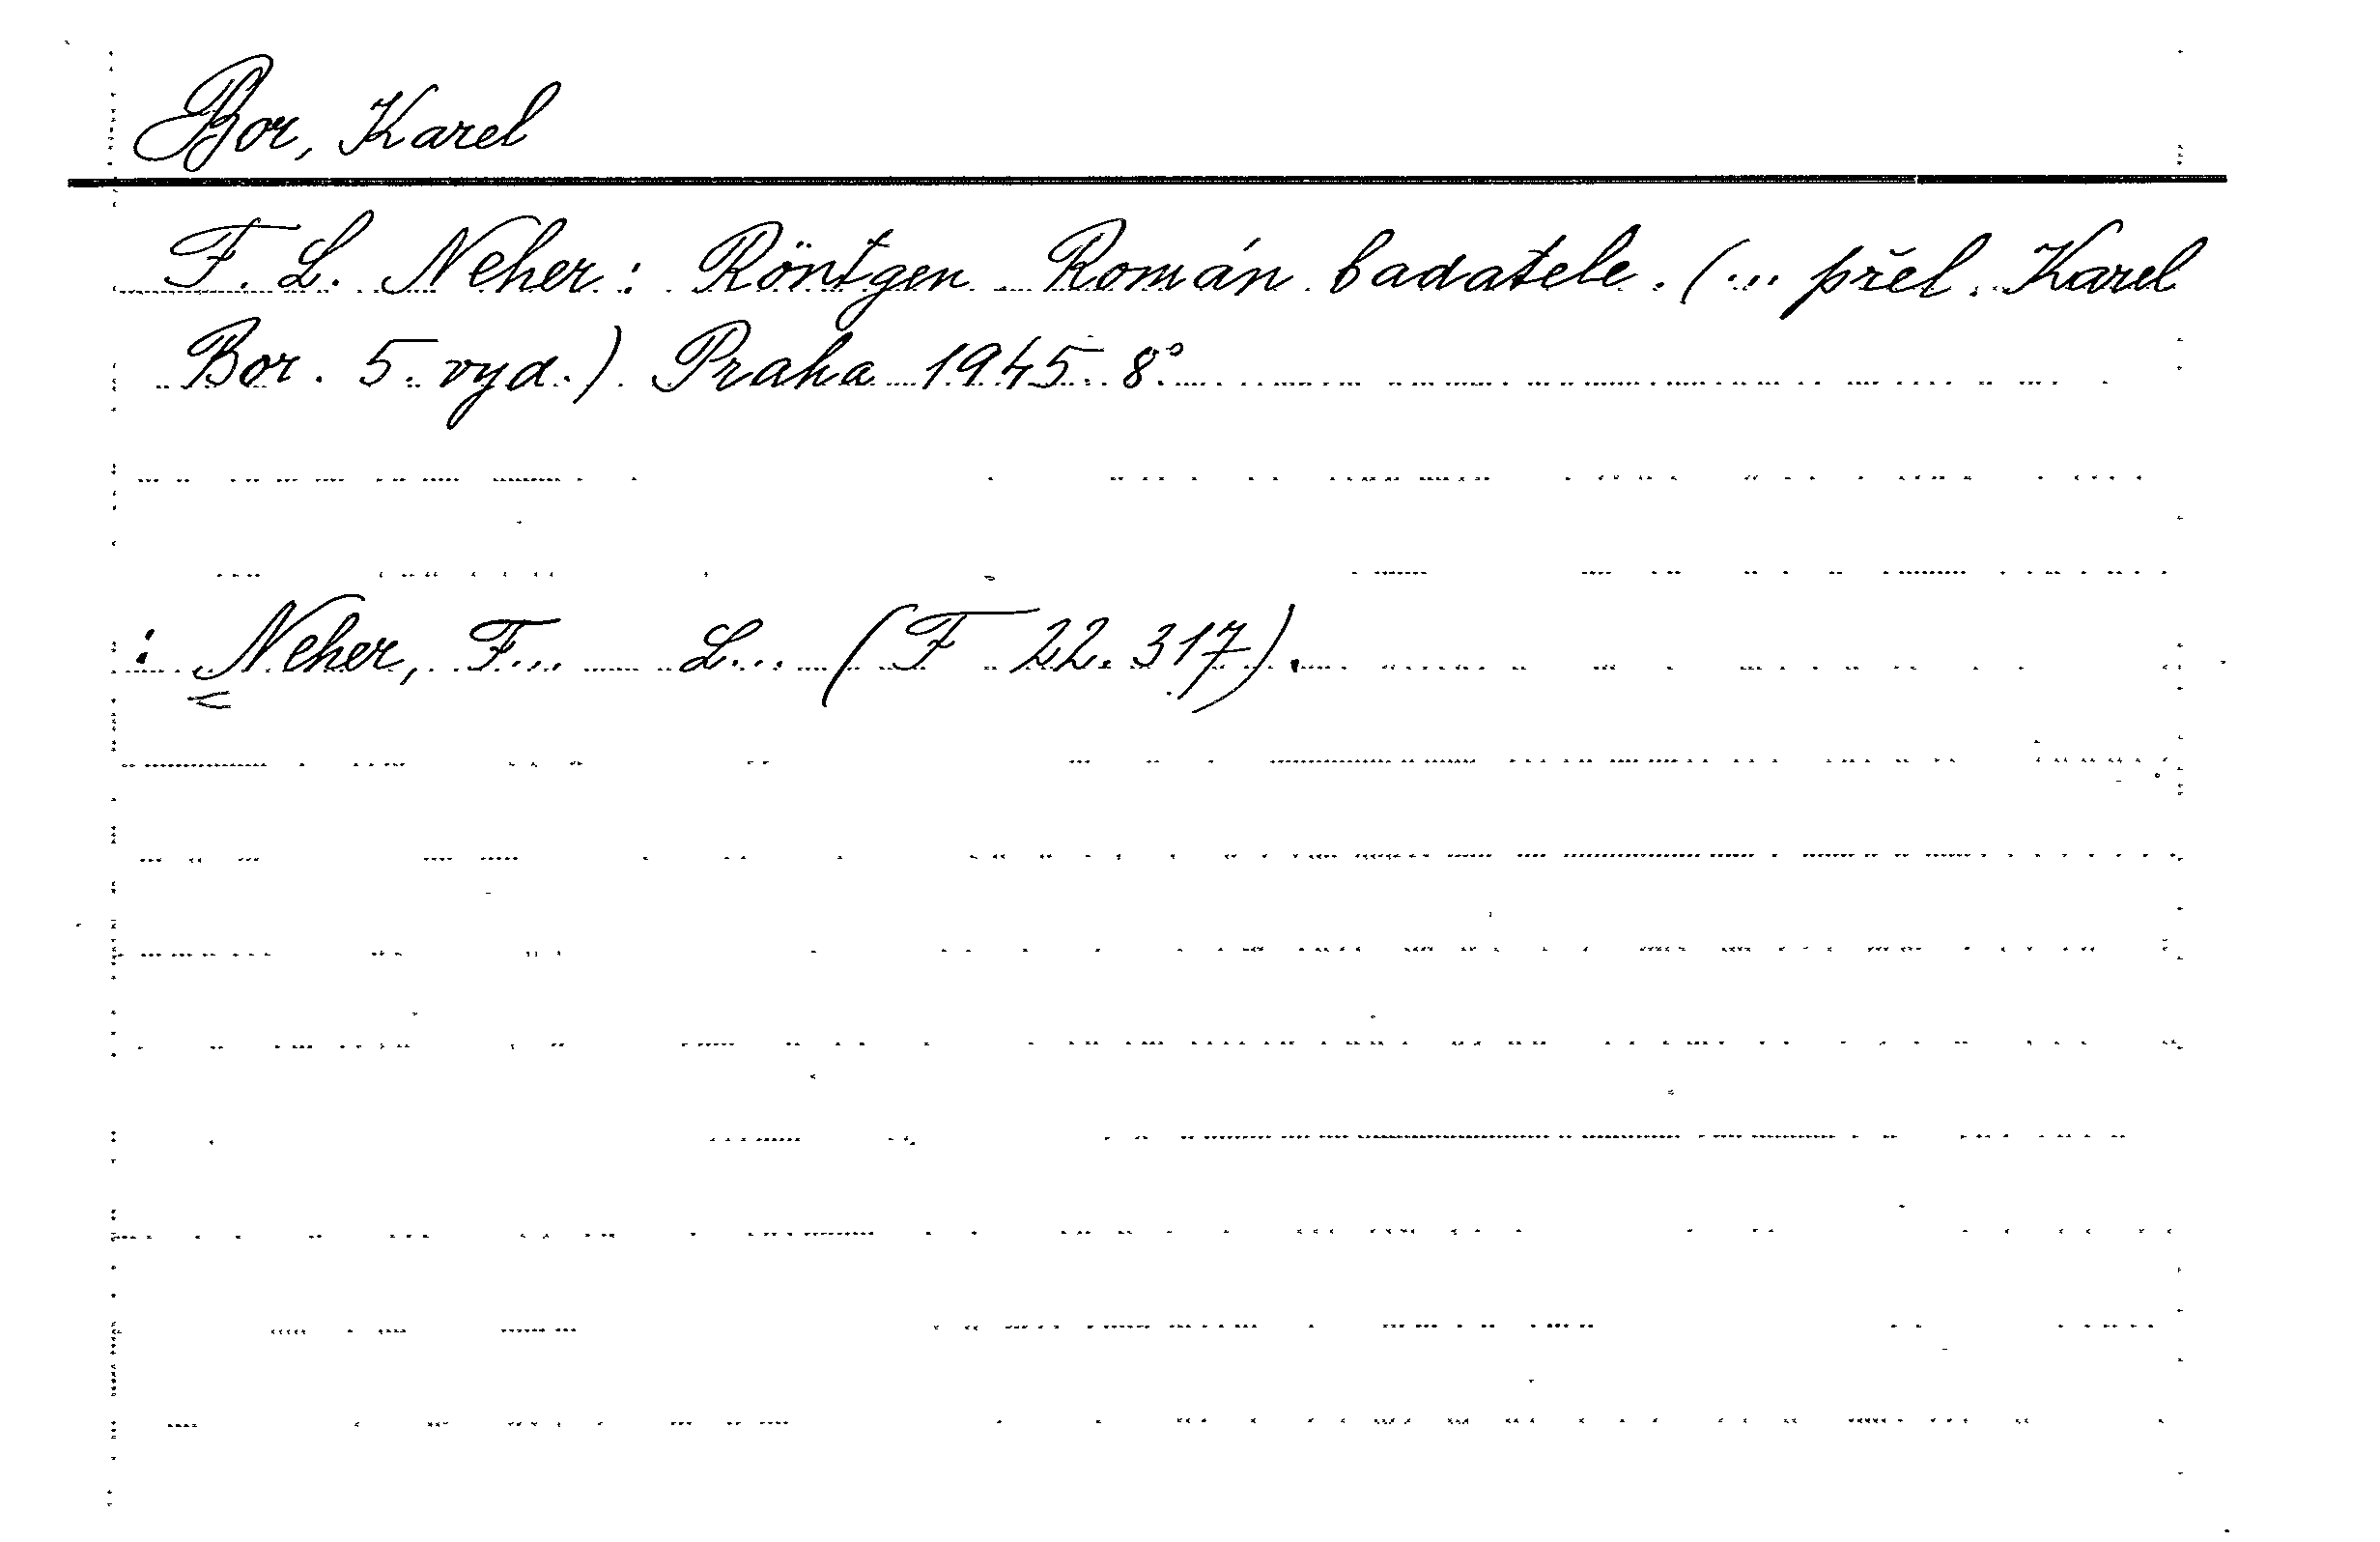 Bor, Karel
F. L. Neher: Röntgen Román badatele. (... přel. Karel
Bor. 5. vyd.) Praha 1945. 8°
: Neher, F... L... (F 22.317).